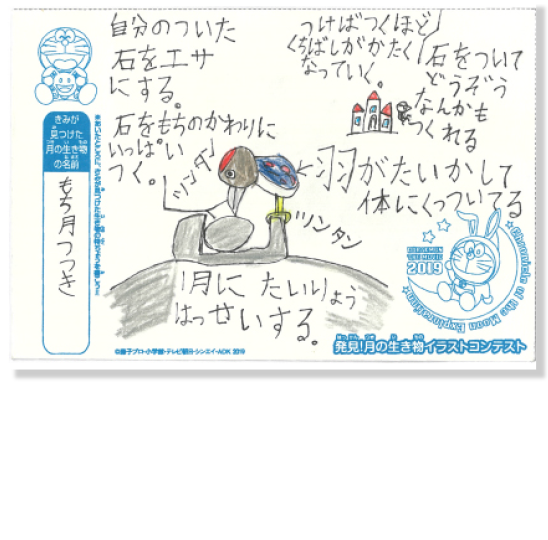 自分のついた
石をエサ
にする。
つけばつくほど
くちばしがかたく
なっていく。
石をついて
どうぞう
なんかも
つくれる
石をもちのかわりに
いっぱい
つく。
ツンタン
羽がたいかして
体にくっついてる
ツンタン
月に たいりょう
はっせいする。
きみが
見つけた
月の生き物
の名前
もち月つつき
DORAEMON
THE MOVIE
2019
Chronicle of the Moon Exploration
発見!月の生き物イラストコンテスト
©藤子プロ・小学館・テレビ朝日・シンエイ・ADK 2019